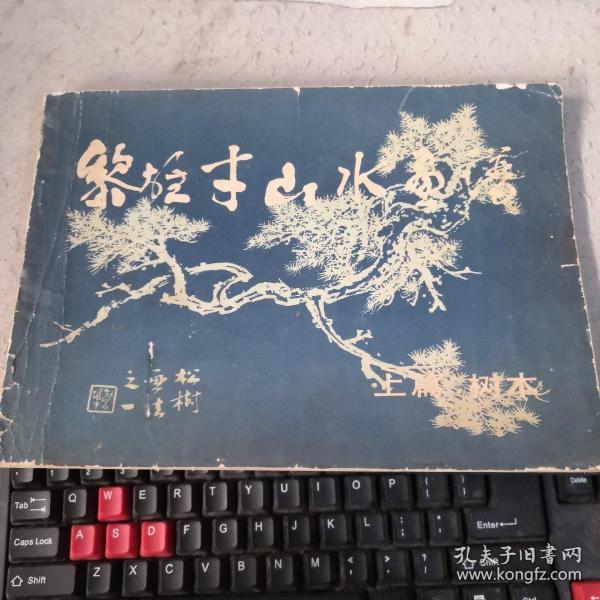 黎雄才山水画谱
松樹
画法
之一
上篇 树木
Tab Q W E R T Y U I O P
Caps Lock A S D F G H J K L Enter
Shift Z X C V B N M Shift
Delete
孔夫子旧书网
www.kongfz.com